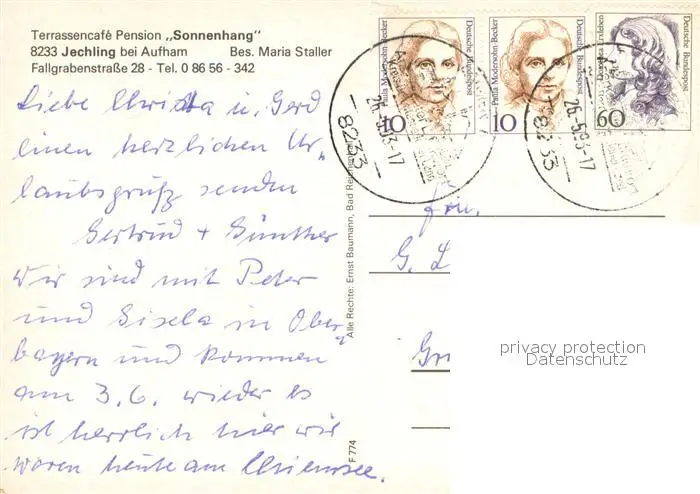 Terrassencafé Pension „Sonnenhang"
8233 Jechling bei Aufham Bes. Maria Staller
Fallgrabenstraße 28 - Tel. 0 86 56 - 342
Liebe Christa u. Gerd
einen herzlichen Ur„
laubsgruß senden
Gertrud + Günther
Wir sind mit Peter
und Gisela in Ober„
bayern und kommen
am 3.6. wieder es
ist herrlich hier wir
waren heute am Chiemsee.
Alle Rechte: Ernst Baumann, Bad Reichenhall
F 774
Paula Modersohn-Becker
Deutsche Bundespost
10
Paula Modersohn-Becker
Deutsche Bundespost
10
Dorothea Erxleben
Deutsche Bundespost
60
26.-5.93-17
8233
26.-5.93-17
8233
Fam.
G. L
privacy protection
Datenschutz